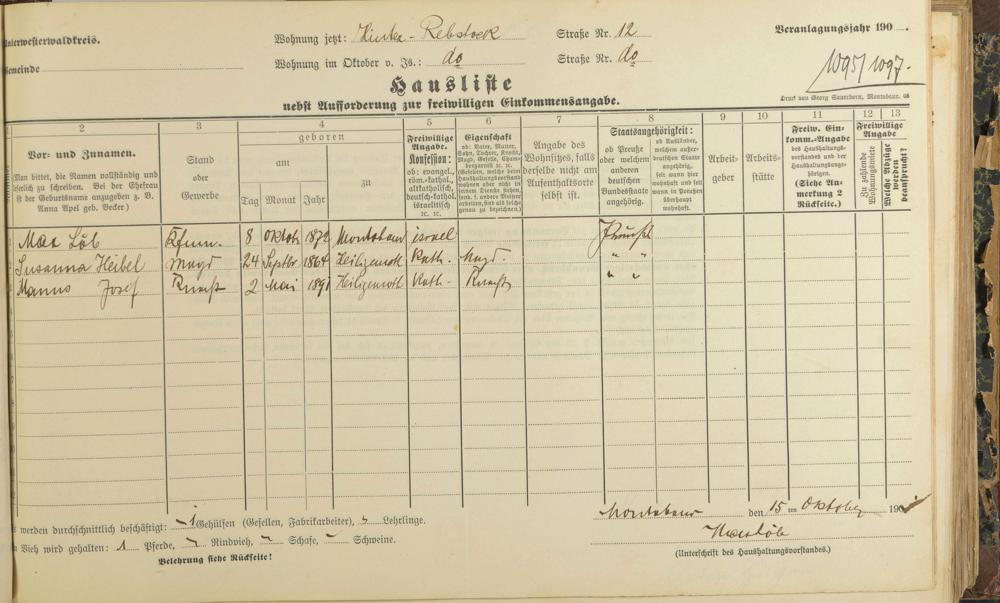 Unterwesterwaldkreis.
Gemeinde
Wohnung jetzt: Hinter-Rebstock Straße Nr. 12
Wohnung im Oktober v. Js.: do Straße Nr. do
Veranlagungsjahr 190
1095/1097.
Hausliste
nebst Aufforderung zur freiwilligen Einkommensangabe.
Druck von Georg Sauerborn, Montabaur.
2 3 4 5 6 7 8 9 10 11 12 13
Vor- und Zunamen.
Man bittet, die Namen vollständig und
deutlich zu schreiben. Bei der Ehefrau
ist der Geburtsname anzugeben z. B.
Anna Apel geb. Becker.)
Stand
oder
Gewerbe
geboren
am
zu
Tag Monat Jahr
Freiwillige
Angabe.
Konfession:
ob: evangel.,
röm.-kathol.,
altkatholisch,
deutsch-kathol.
israelitisch,
2c. 2c.
Eigenschaft
ob: Vater, Mutter,
Sohn, Tochter, Knecht,
Magd, Geselle,
Angabe des
Wohnsitzes, falls
derselbe nicht am
Aufenthaltsorte
selbst ist.
Staatsangehörigkeit:
ob Preuße
oder welchem
anderen
deutschen
Bundesstaate
angehörig.
ob Ausländer,
welchem außer-
deutschen Staate
angehörig,
seit wann hier
wohnhaft und seit
wann in Preußen
überhaupt
wohnhaft.
Arbeit-
geber
Arbeits-
stätte
Freiw. Ein-
komm.-Angabe
des Haushaltungs-
vorstandes und der
Haushaltungsange-
hörigen.
(Siehe An-
merkung 2
Rückseite.)
Freiwillige
Angabe
Zu zahlende
Wohnungsmiete
Welche Abzüge
werden
beansprucht?
Max Löb Kfm. 8 Oktob 1872 Montabaur israel Preuße
Susanna Heibel Magd 24 Septbr 1864 Heiligenroth Kath. Magd. " "
Manns Josef Knecht 2 Mai 1891 Heiligenroth Kath. Knecht " "
werden durchschnittlich beschäftigt: 1 Gehülfen (Gesellen, Fabrikarbeiter), Lehrlinge.
Vieh wird gehalten: 1 Pferde, Rindvieh, Schafe, Schweine.
Belehrung siehe Rückseite!
Montabaur den 15 ten Oktober 190
Max Löb
(Unterschrift des Haushaltungsvorstandes.)